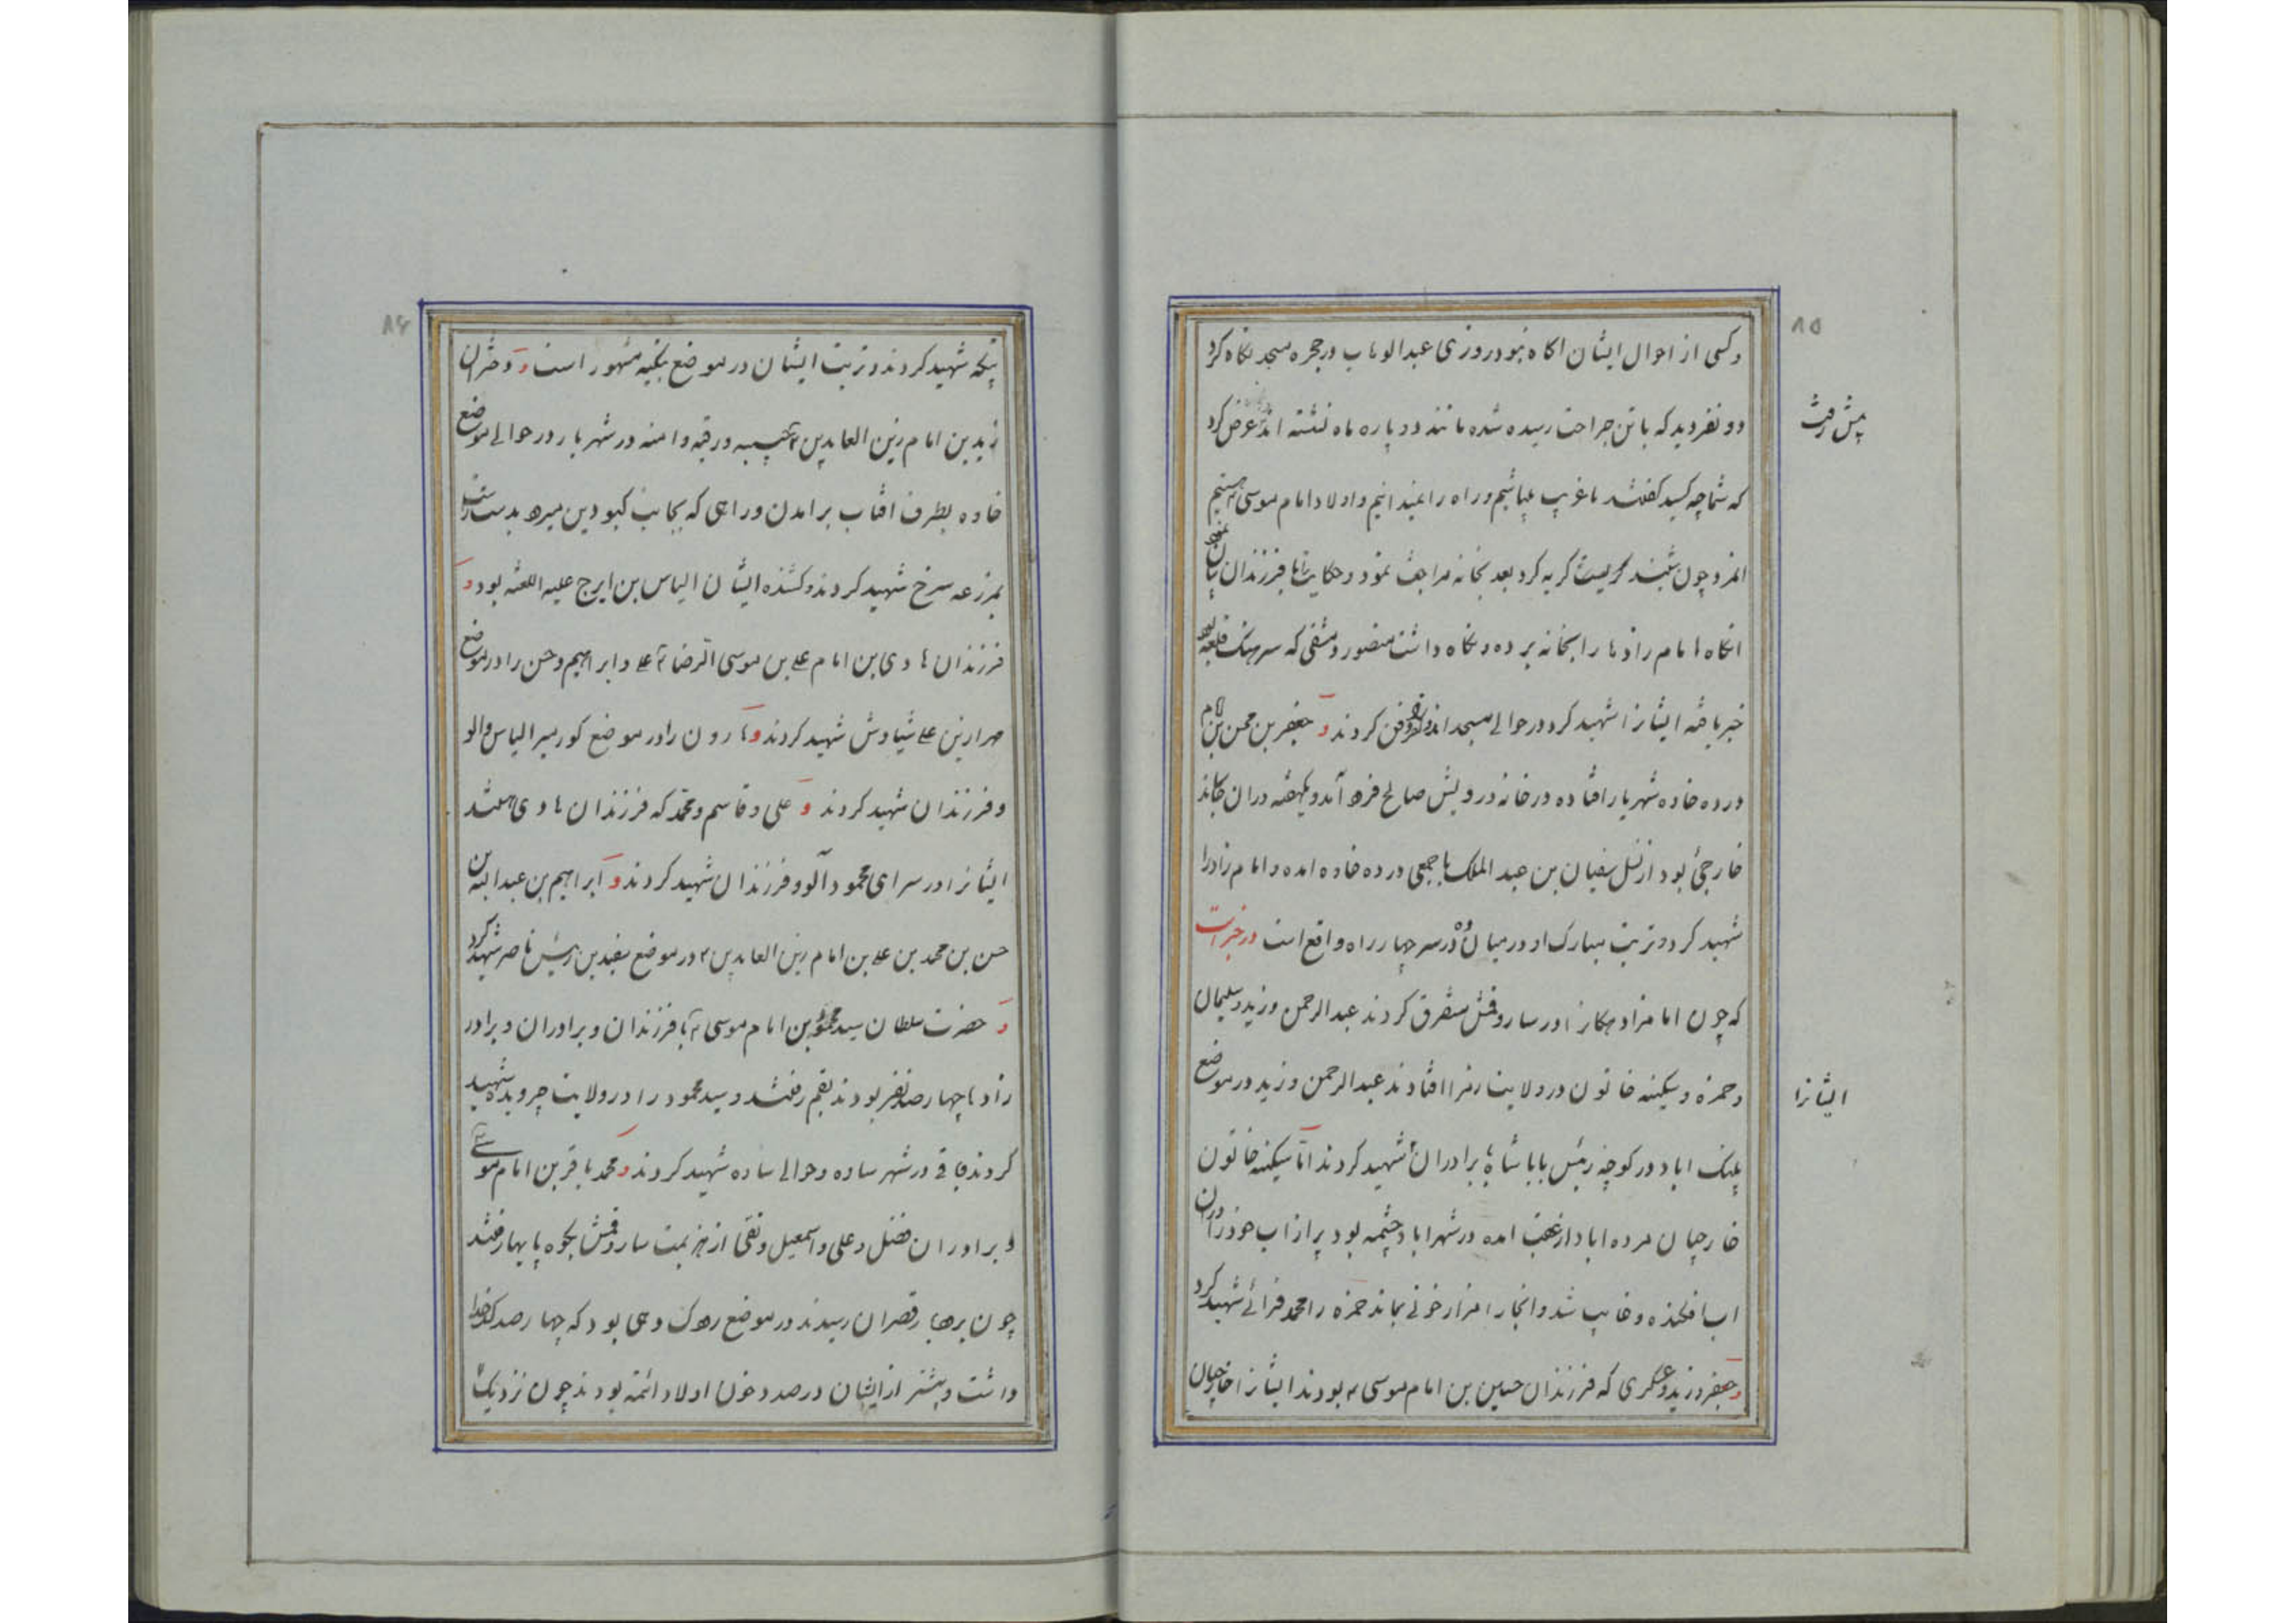 ۸۵
وکسی از احوال ایشان اکاه نبود روزی عبدالوهاب در حجره مسجد نکاه کرد
دو نفر دید که با تن جراحت رسیده شده مانند دو پاره ماه نشسته اند عرض کرد
پیش رفت
که شما چه کسید کفتند ما غریب میباشیم و راه را نمیدانیم و اولاد امام موسی هستیم
انمرد چون شنید کریست کریه کرد بعد بخانه مراجعت نمود و حکایت را با فرزندان
انکاه امام زادها را بخانه برده و نکاه داشت منصور دمشقی که سرهنک قلعه بود
خبر یافته ایشانرا شهید کرد در حوالی مسجد اندرون دفن کردند و جعفر بن محسن بن امام
در ده خاده شهریار افتاده در خانه درویش صالح فرود آمد و یکهفته دران جا ماند
خارجئ بود از نسل سفیان بن عبد الملک با جمعی در ده خاده امده و امام زاده را
شهید کرد و تربت مبارک او در میان ده در سر چهار راه واقع است در خبر است
که چون امامزاد هکانرا در ساروقمش متفرق کردند عبدالرحمن و زید و سلیمان
و حمزه و سکینه خاتون در ولایت زهرا افتادند عبدالرحمن و زید در موضع
ایشانرا
پلنک اباد در کوچه رئیس بابا شاه با برادران شهید کردند امّا سکینه خاتون
خارجیان مرده اباد از عقب امده در شهراباد چشمه بود پر از اب خود را دران
اب افکنده و غایب شد و انجا را مزار خونی بماند حمزه را محمد فرائی شهید کرد
و جعفر و زید و عسکری که فرزندان حسین بن امام موسی بودند ایشانرا خارجیان
۸۶
بتکه شهید کردند و تربت ایشان در موضع بکیه مشهور است و دختران
زید بن امام زین العابدین حبیبه و رقیه و امنه در شهریار در حوالی موضع
خاده بطرف افتاب برامدن و راهی که بجانب کبودین میرود بدست راست
بمزرعه سرخ شهید کردند و کشنده ایشان الیاس بن ایرج علیه اللعنه بود و
فرزندان هادی بن امام علی بن موسی الرضا علی و ابراهیم و حسن را در موضع
علی شیاوش شهید کردند و هارون را در موضع کور میر الیاس والو
و فرزندان شهید کردند و علی و قاسم و محمد که فرزندان هادی هستند
ایشانرا در سرای محمود آلو و فرزندان شهید کردند و ابراهیم بن عبدالله بن
حسن بن محمد بن علی بن امام زین العابدین در موضع سفید بن رئیس ناصر شهید کرد
و حضرت سلطان سید محمود بن امام موسی با فرزندان و برادران و برادر
زادها چهار صد نفر بودند بقم رفتند و سید محمود را در ولایت شهید
کردند باقی در شهر ساوه و حوالی ساوه شهید کردند و محمد باقر بن امام موسی
و برادران فضل و علی و اسمعیل و نقی از هزیمت ساروقمش بکوه پایها رفتند
چون برودبار قصران رسیدند در موضع رهک دهی بود که چهار صد کدخدا
داشت و بیشتر از ایشان در صدد خون اولاد ائمه بودند چون نزدیک